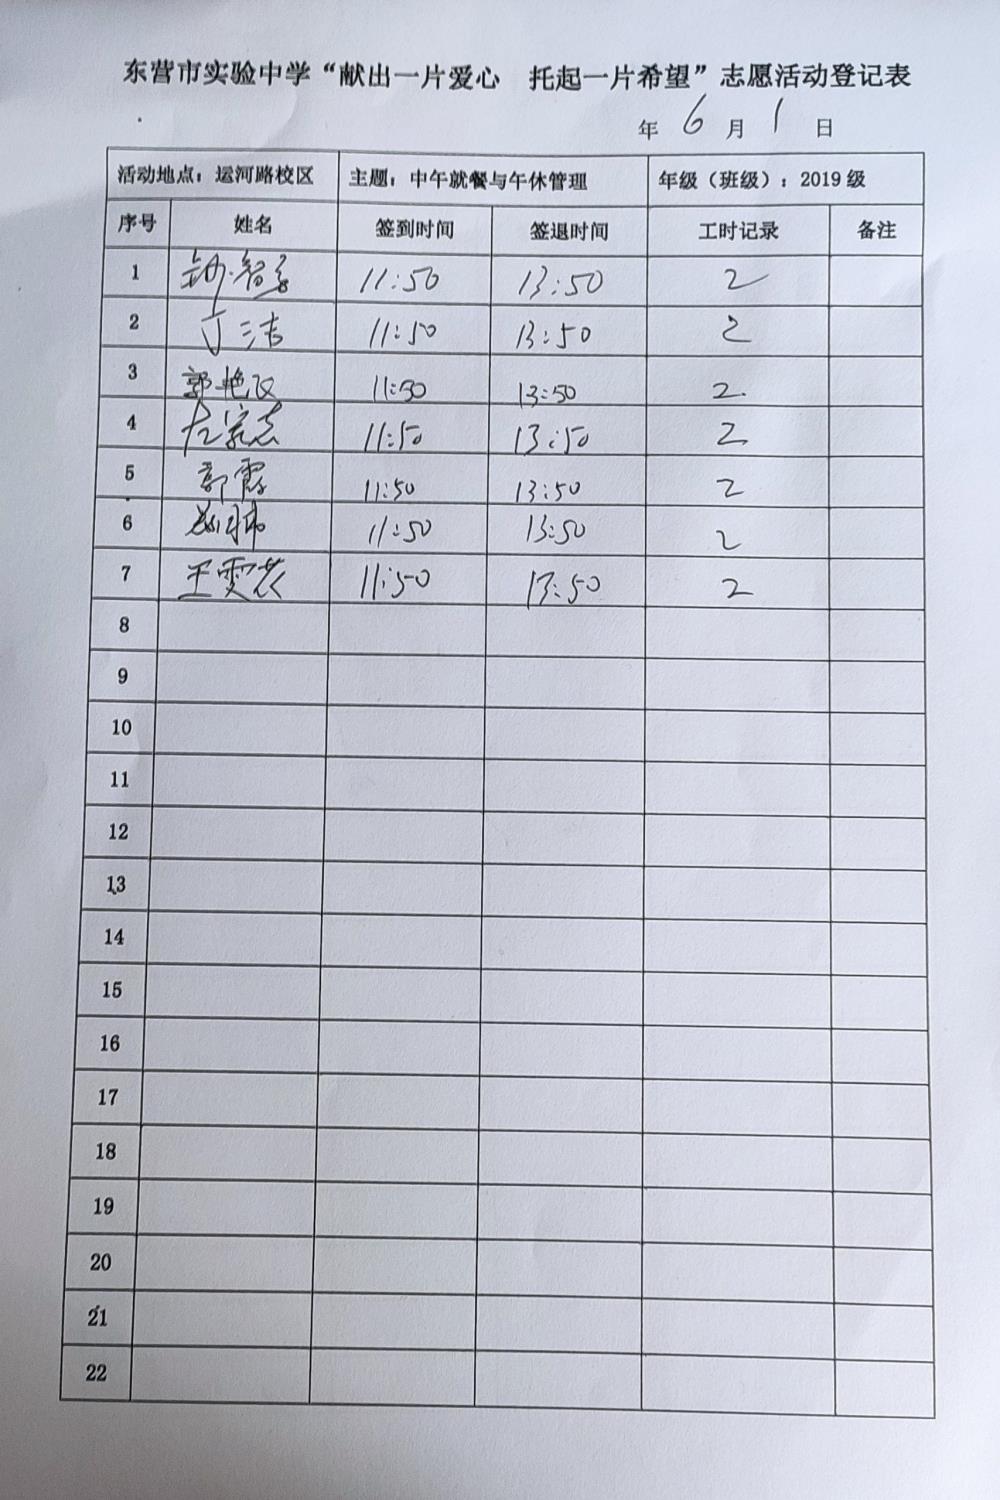 东营市实验中学“献出一片爱心 托起一片希望”志愿活动登记表
年 6 月 1 日
活动地点：运河路校区 主题：中午就餐与午休管理 年级（班级）：2019 级
序号 姓名 签到时间 签退时间 工时记录 备注
1 11:50 13:50 2
2 丁洁 11:50 13:50 2
3 郭艳 11:50 13:50 2
4 11:50 13:50 2
5 郭霞 11:50 13:50 2
6 11:50 13:50 2
7 王雯 11:50 13:50 2
8
9
10
11
12
13
14
15
16
17
18
19
20
21
22